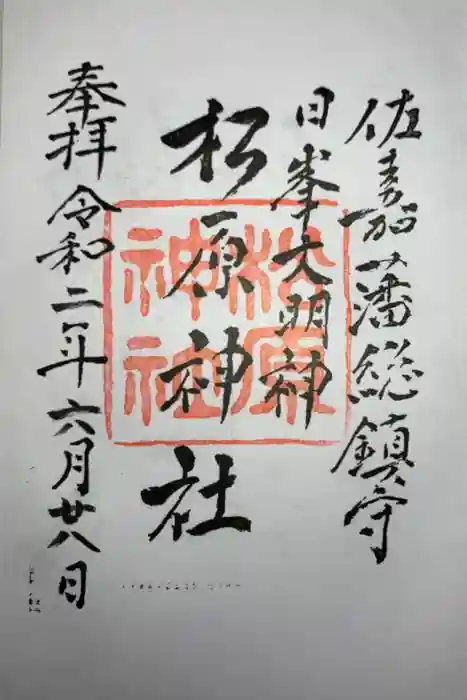 佐嘉藩総鎮守
日峯大明神
松原神社
松原神社
奉拝 令和二年六月廿八日